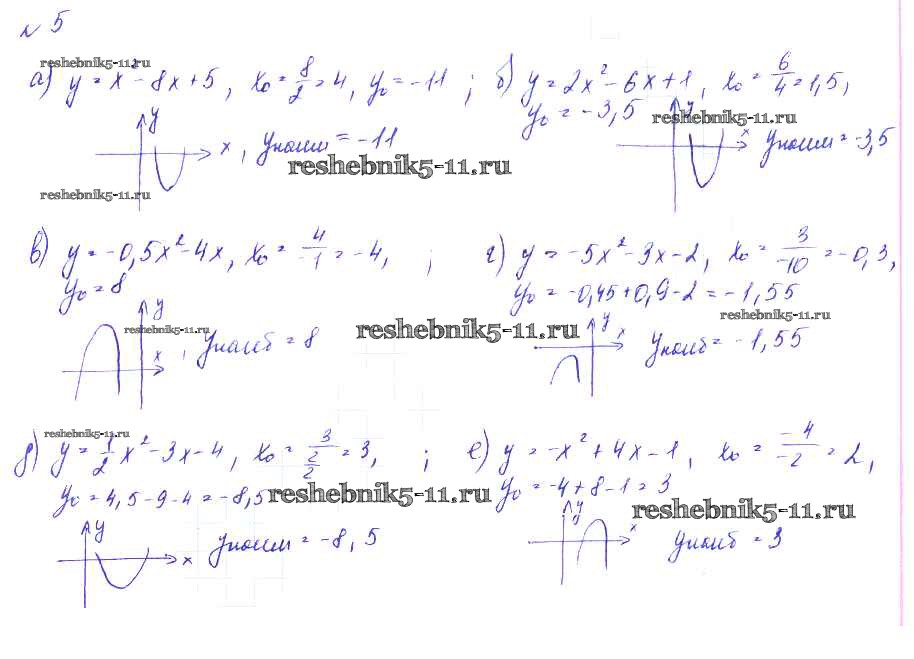 № 5
reshebnik5-11.ru
а) y = x² - 8x + 5, x₀ = 8/2 = 4, y₀ = -11 ; б) y = 2x² - 6x + 1, x₀ = 6/4 = 1,5,
y₀ = -3,5
reshebnik5-11.ru
y x , yнаим = -11
reshebnik5-11.ru
y x yнаим = -3,5
reshebnik5-11.ru
в) y = -0,5x² - 4x, x₀ = 4/-1 = -4, ; г) y = -5x² - 3x - 2, x₀ = 3/-10 = -0,3,
y₀ = 8
y₀ = -0,45 + 0,9 - 2 = -1,55
reshebnik5-11.ru
reshebnik5-11.ru
reshebnik5-11.ru
y x , yнаиб = 8
y x yнаиб = -1,55
reshebnik5-11.ru
д) y = 1/2 x² - 3x - 4, x₀ = 3/(2/2) = 3, ; е) y = -x² + 4x - 1, x₀ = -4/-2 = 2,
y₀ = 4,5 - 9 - 4 = -8,5
reshebnik5-11.ru
y₀ = -4 + 8 - 1 = 3
reshebnik5-11.ru
y x yнаим = -8,5
y x yнаиб = 3